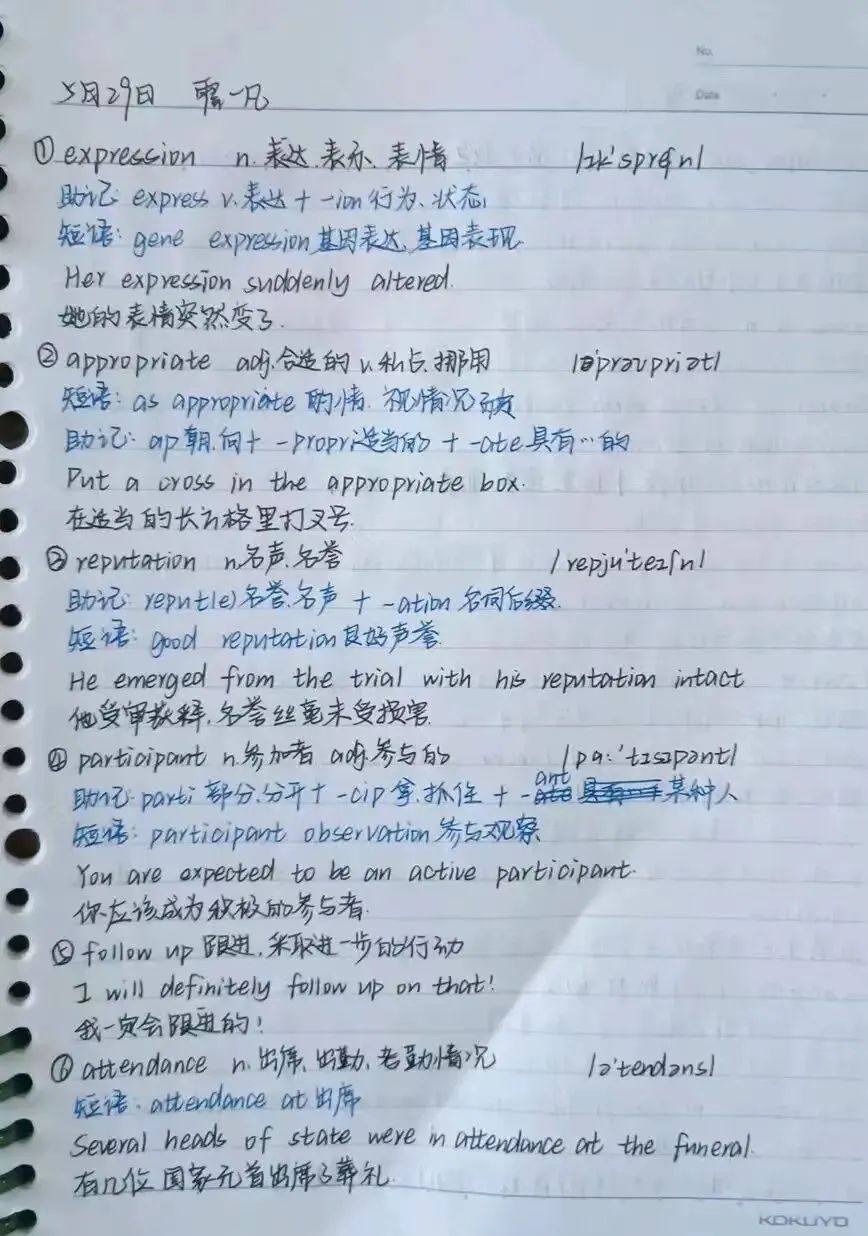 No.
Date
5月29日 一凡
① expression n.表达.表示、表情 /ɪk'spreʃn/
助记: express v.表达 + -ion 行为、状态
短语: gene expression 基因表达,基因表现
Her expression suddenly altered.
她的表情突然变了.
② appropriate adj.合适的 v.私占.挪用 /ə'prəʊpriət/
短语: as appropriate 酌情.视情况而定
助记: ap朝.向+ -propri适当的 + -ate具有…的
Put a cross in the appropriate box.
在适当的长方格里打叉号.
③ reputation n.名声.名誉 /repju'teɪʃn/
助记: reput(e)名誉.名声 + -ation 名词后缀.
短语: good reputation良好声誉
He emerged from the trial with his reputation intact
他受审获释,名誉丝毫未受损害.
④ participant n.参加者 adj.参与的 /pɑː'tɪsɪpənt/
助记: parti 部分.分开+ -cip 拿.抓住 + -ant 某种人
短语: participant observation 参与观察
You are expected to be an active participant.
你应该成为积极的参与者.
⑤ follow up 跟进,采取进一步的行动
I will definitely follow up on that!
我一定会跟进的!
⑥ attendance n.出席、出勤、考勤情况 /ə'tendəns/
短语: attendance at 出席
Several heads of state were in attendance at the funeral.
有几位国家元首出席了葬礼.
KOKUYO